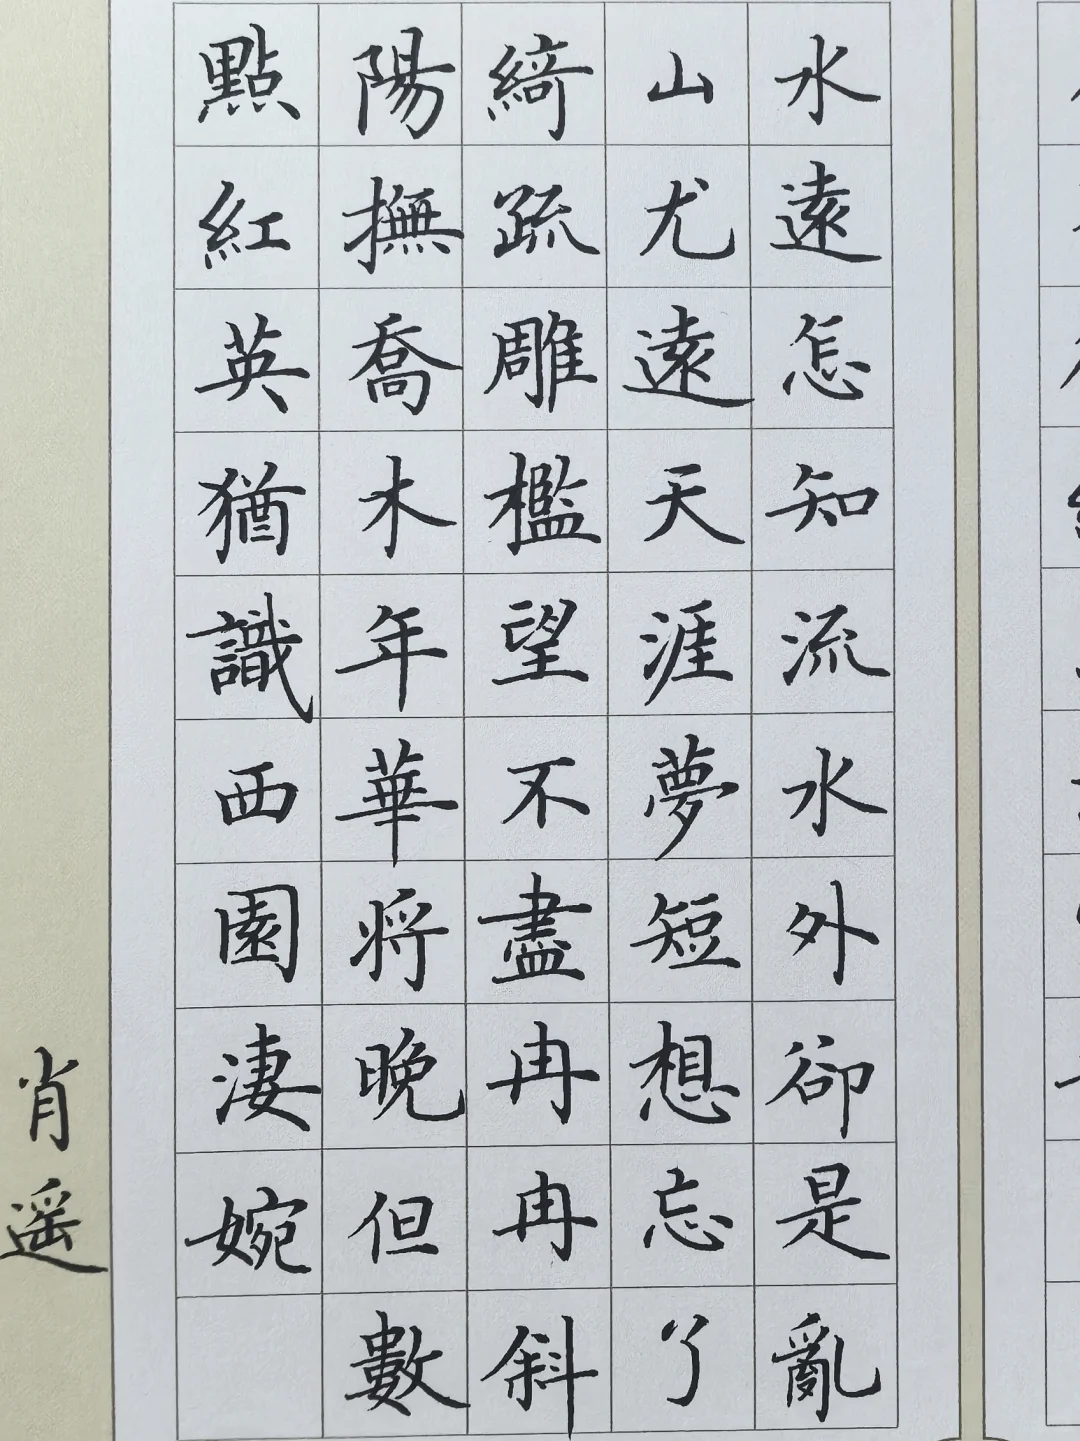 水遠怎知流水外卻是亂
山尤遠天涯夢短想忘了
綺疏雕檻望不盡冉冉斜
陽撫喬木年華將晚但數
點紅英猶識西園淒婉
肖遥